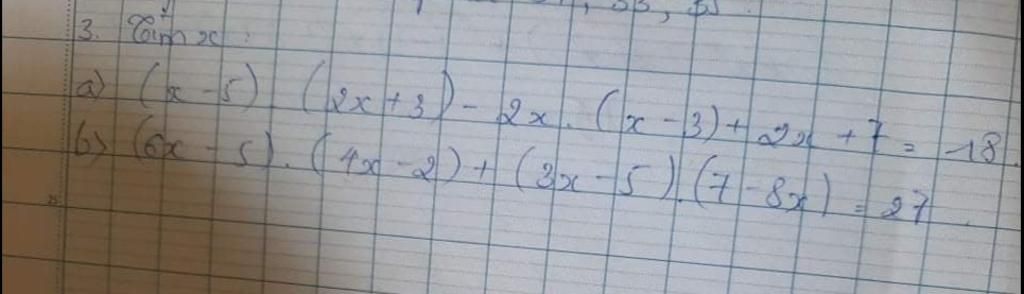 3. Tìm x :
a) (x - 5) (2x + 3) - 2x . (x - 3) + 2x + 7 = -18
b) (6x - 5) . (4x - 2) + (3x - 5) . (7 - 8x) = 27